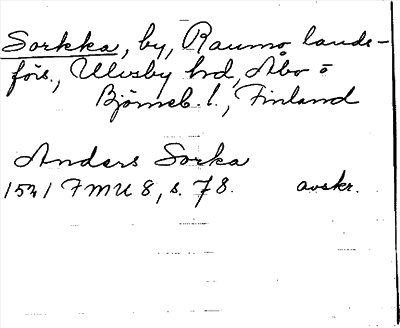 Sorkka, by, Raumo lands-
förs., Ulvsby hd, Åbo o
Björneb. l., Finland
Anders Sorka
1541 FMU 8, s. 78. avskr.